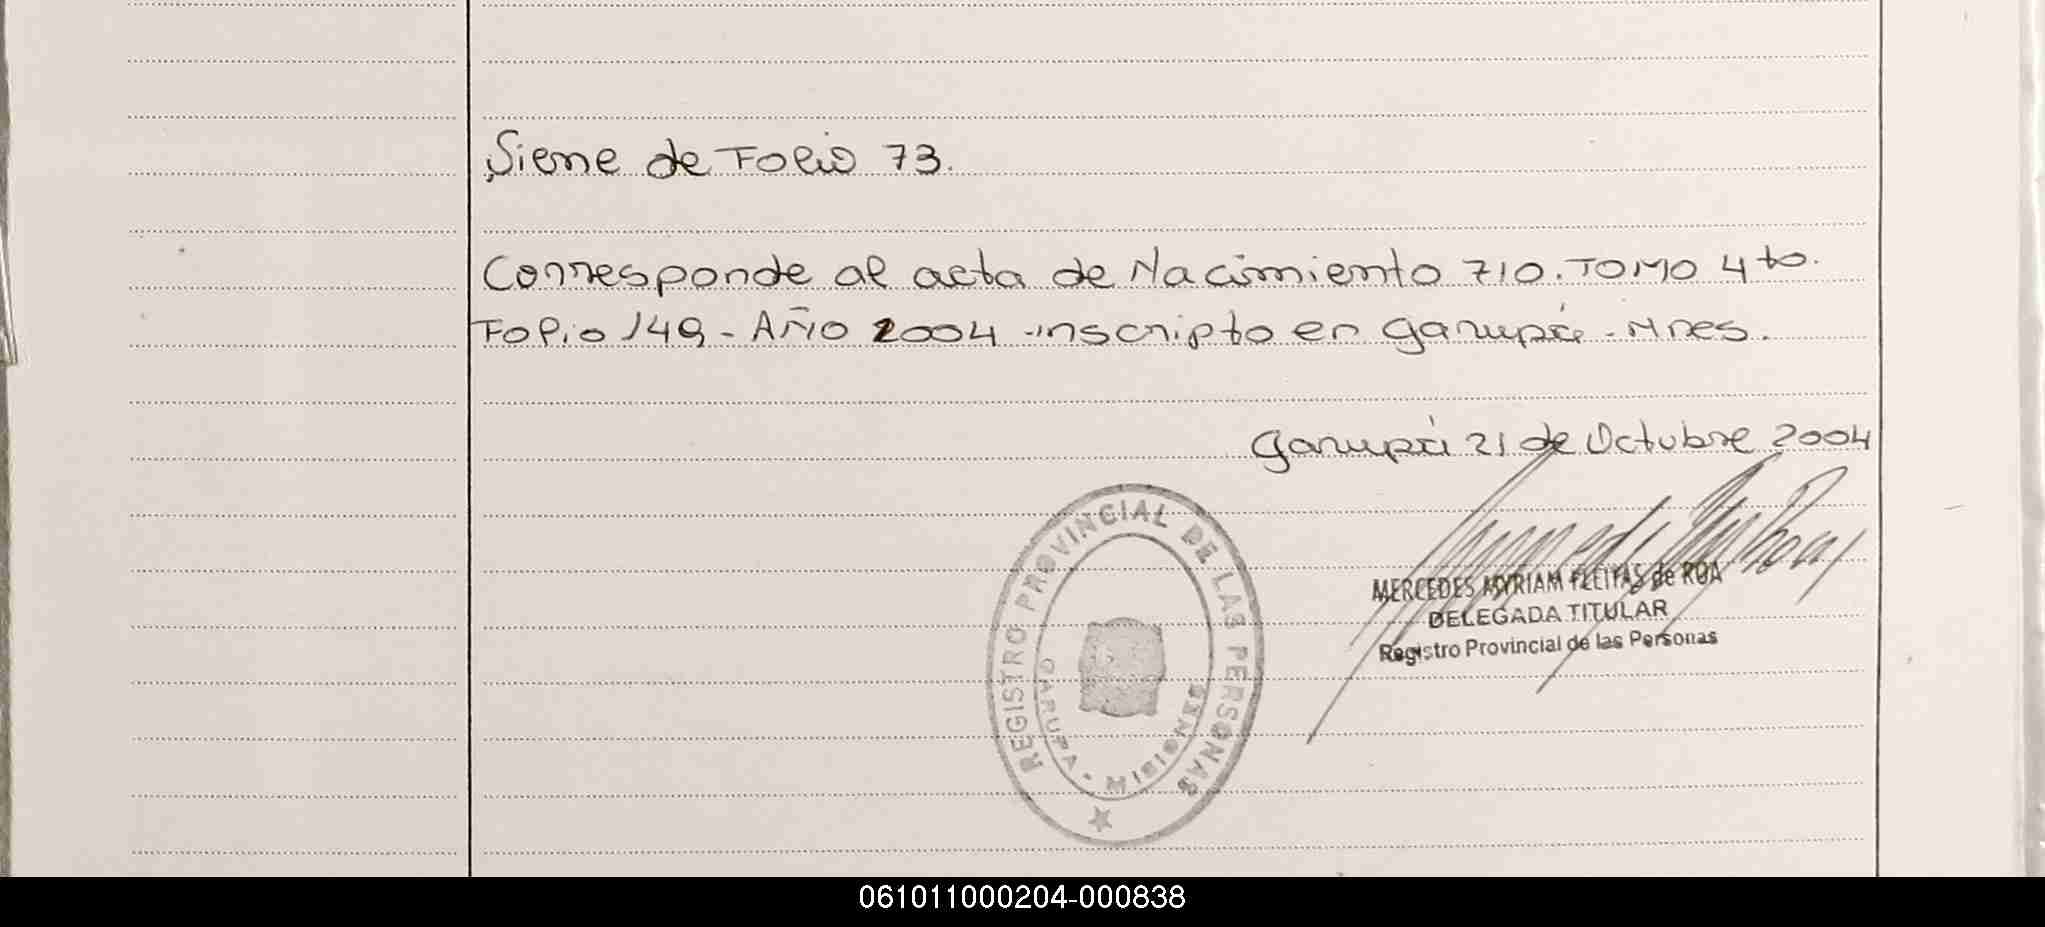 Siene de Folio 73.
Corresponde al acta de Nacimiento 710. TOMO 4to.
Folio 149 - AÑO 2004 - inscripto en garupá - Mnes.
garupá 21 de Octubre 2004
REGISTRO PROVINCIAL DE LAS PERSONAS
GARUPA - MISIONES
MERCEDES MYRIAM FLEITAS de ROA
DELEGADA TITULAR
Registro Provincial de las Personas
061011000204-000838